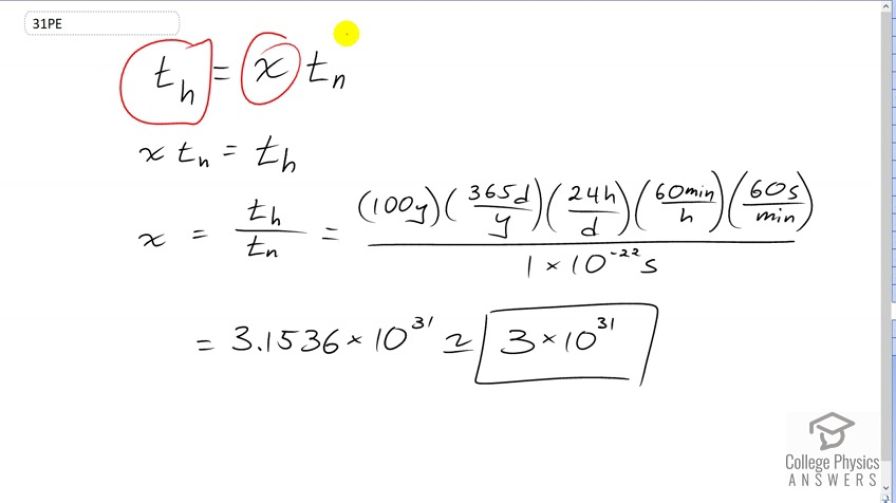 31PE
t_h = x t_n
x t_n = t_h
x = t_h/t_n = (100y)(365d/y)(24h/d)(60min/h)(60s/min) / 1 × 10^-22 s
= 3.1536 × 10^31 ≃ 3 × 10^31
College Physics
ANSWERS